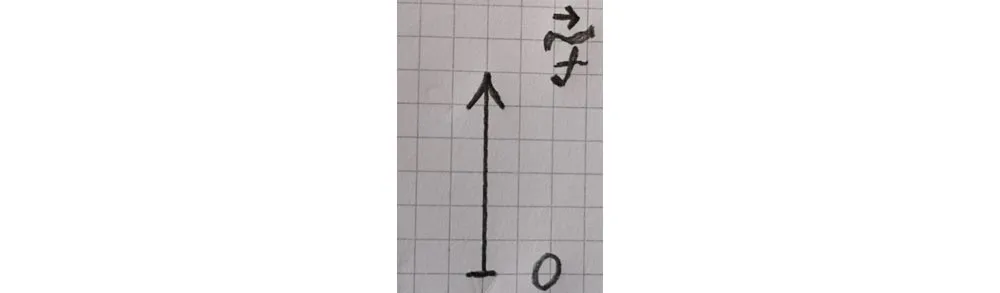 $\vec{\tilde{f}}$
0